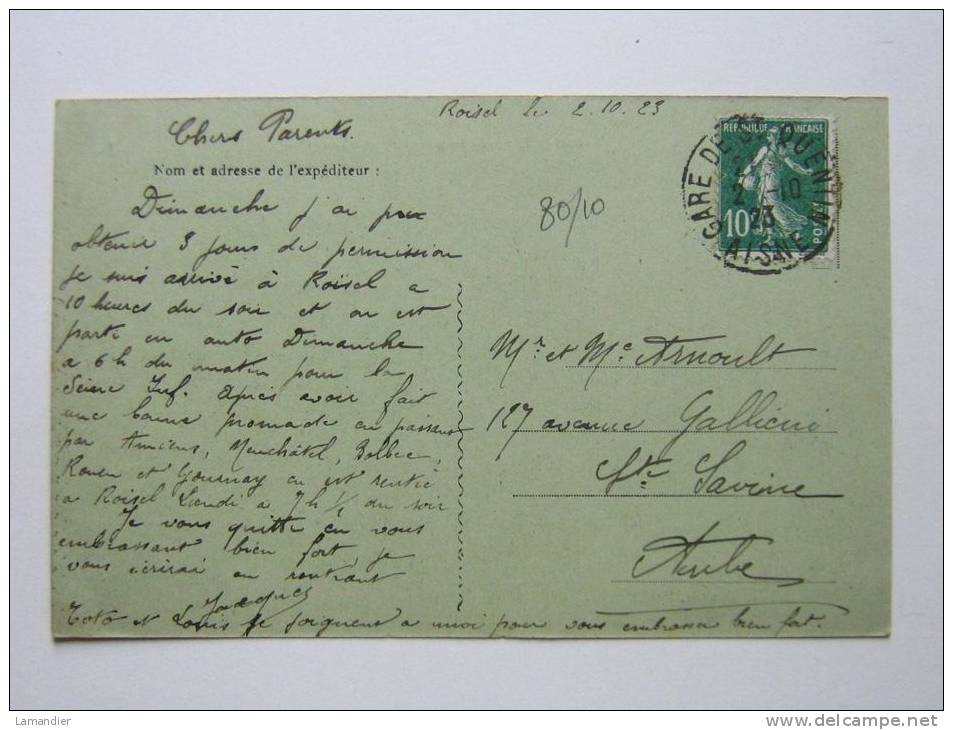 Roisel le 2.10.23
Chers Parents.
Nom et adresse de l'expéditeur :
Dimanche j'ai pue
obtenir 3 jours de permission
je suis arrivé à Roisel a
10 heures du soir et on est
parti en auto Dimanche
a 6h du matin pour la
Seine Inf. Après avoir fait
une bonne promade en passant
par Amiens, Neuchâtel, Bolbec,
Rouen et Gournay on est rentré
a Roisel Lundi à 7h ½ du soir
Je vous quitte en vous
embrassant bien fort, je
vous écrirai en rentrant
Jacques
Toto et Louis se joignent a moi pour vous embrasser bien fort.
80/10
REPUBLIQUE FRANÇAISE
10c
POSTES
GARE DE ST QUENTIN
2 -10
23
AISNE
Mr. et Me Arnoult
127 avenue Galliéni
Ste Savine
Aube
Lamandier
www.delcampe.net